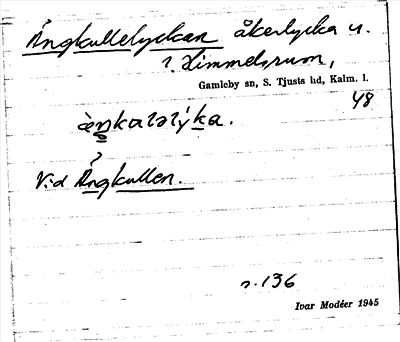 Ängkullelyckan åkerlycka u.
Himmelsrum,
Gamleby sn, S. Tjusts hd, Kalm. l.
48
Vid Ängkullen.
s. 136
Ivar Modéer 1945